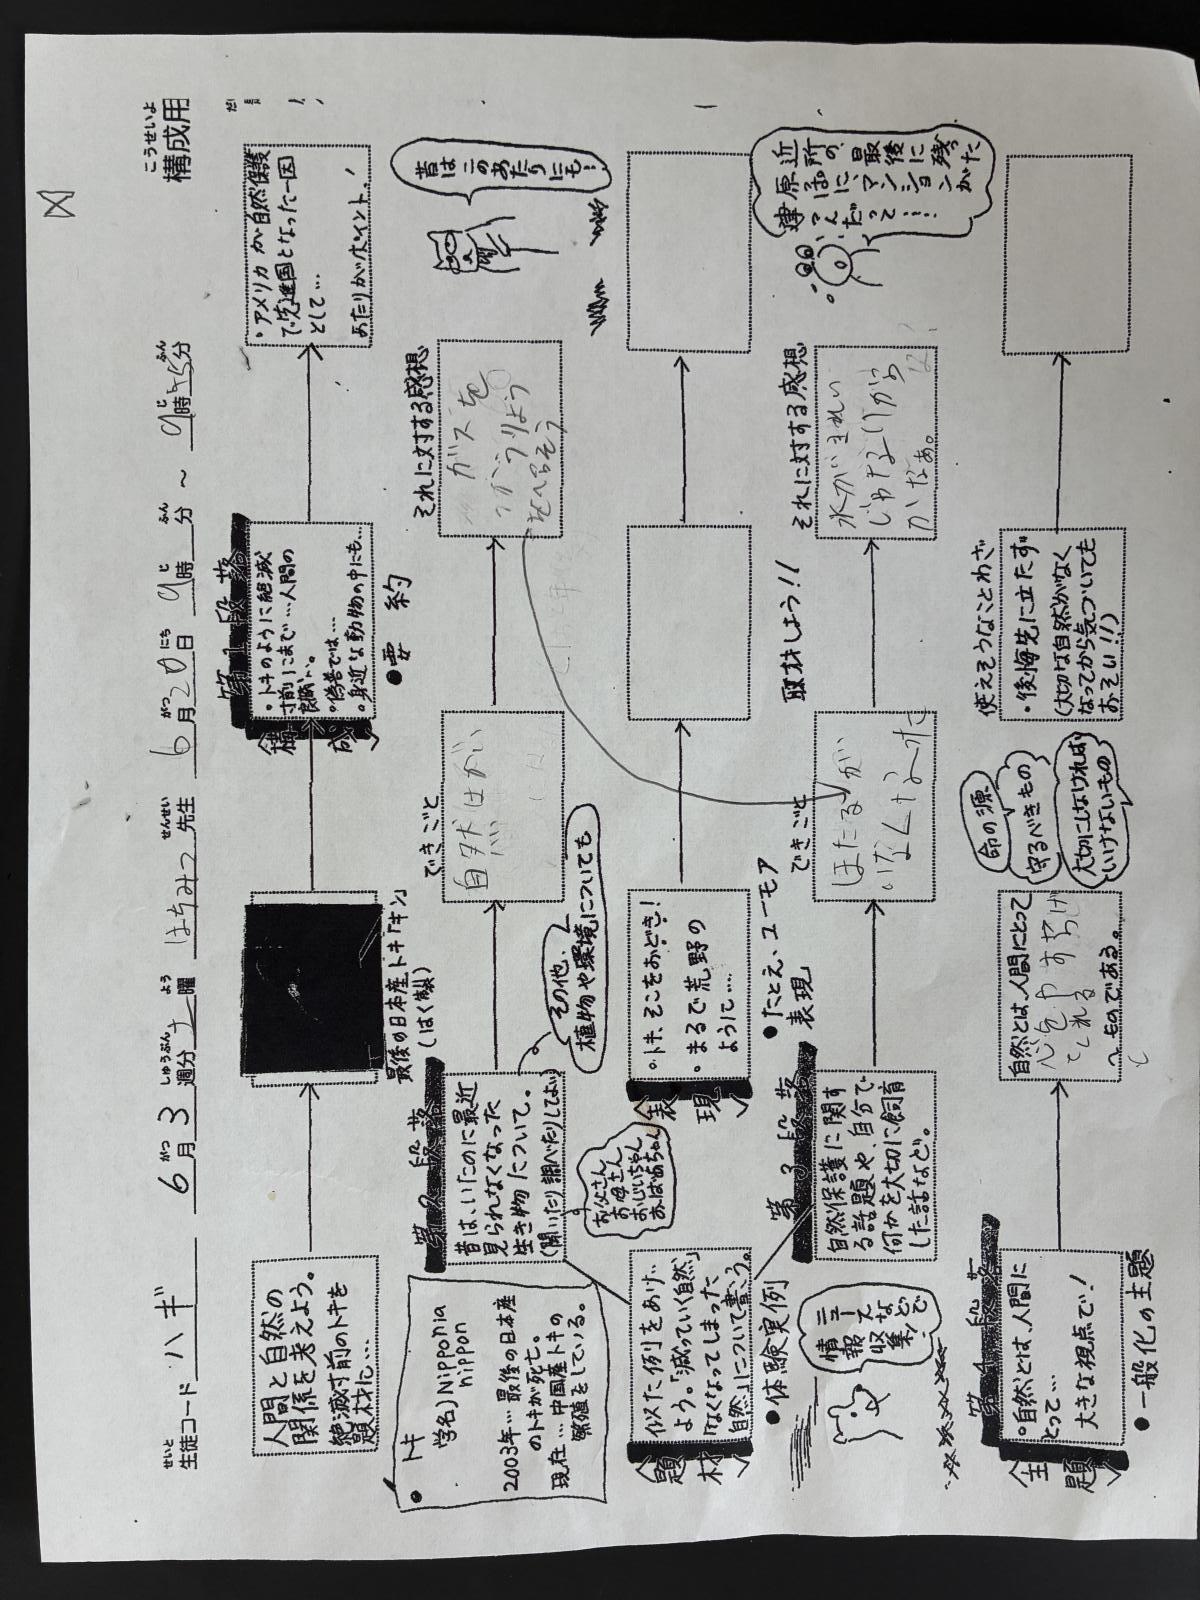 構成用
こうせいよ
せいと
生徒コード ハギ
がつ しゅうぶん よう
6月3週分土曜
せんせい
はちみつ先生
がつ にち じ ふん じ ふん
6月20日9時 分～9時55分
人間と自然の
関係を考えよう。
絶滅寸前のトキを
題材に…
最後の日本産トキ「キン」
（はく製）
第1段落
〈構成〉
・トキのように絶滅
寸前にまで…人間の
・偽善では…
・身近な動物の中にも…
●要約
・アメリカが自然保護
で先進国となった一因
として…
あたりがポイント！
●トキ
学名)Nipponia
nippon
2003年…最後の日本産
のトキが死亡。
現在…中国産トキの
繁殖をしている。
第2段落
昔は、いたのに最近
見られなくなった
生き物について。
（聞いたり調べたりしてよい）
その他、
植物や環境についても
お父さん
お母さん
おじいちゃん
おばあちゃん
できごと
自然はがい
それに対する感想
ガスを
昔は
このあたりにも！
〈題材〉
似た例をあげ
よう。「減っていく自然」
「なくなってしまった
自然」について書こう。
●体験実例
〈表現〉
・トキ、そこをおどき！
・まるで荒野の
ように…
●たとえ、ユーモア
表現
第3段落
自然保護に関す
る話題や、自分で
何かを大切に飼育
した話など。
ニュース
などで
情報
収集！
できごと
ほたるが
いなくなった
取材しよう！！
それに対する感想
水がきれい
じゃないから
かなぁ。
近所の、最後に残った
原っぱに、マンションが
建つんだって…！
第4段落
〈主題〉
・自然とは、人間に
とって…
大きな視点で！
●一般化の主題
自然とは、人間にとって
心をやすらげ
てくれる
ものである。
命の源
守るべきもの
大切にしなければ
いけないもの
使えそうなことわざ
・後悔先に立たず
（大切な自然がなく
なってから気づいても
おそい！！）